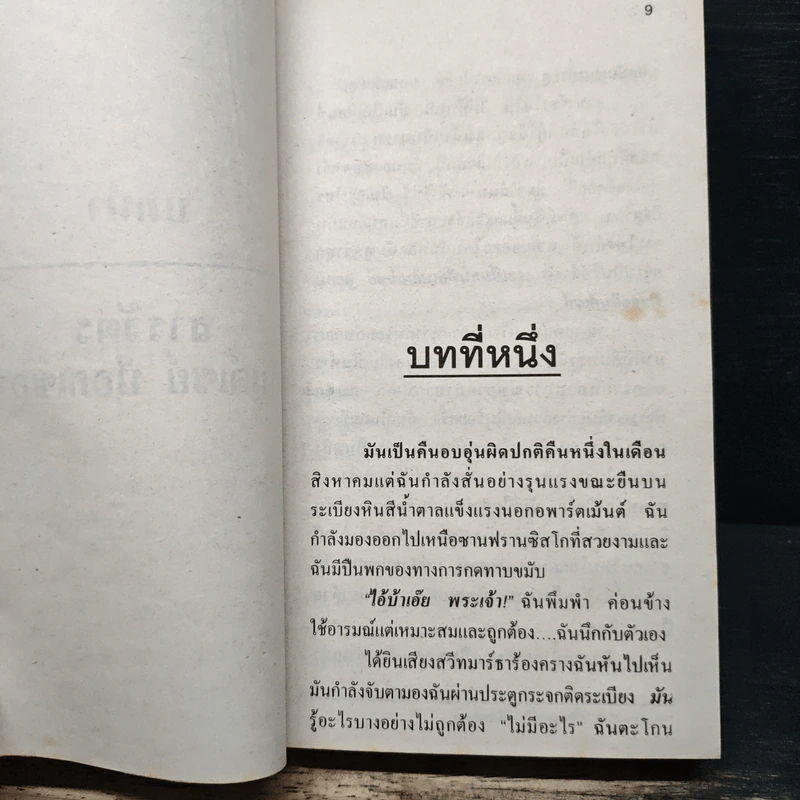 9
บทที่หนึ่ง
มันเป็นคืนอบอุ่นผิดปกติคืนหนึ่งในเดือน
สิงหาคมแต่ฉันกำลังสั่นอย่างรุนแรงขณะยืนบน
ระเบียงหินสีน้ำตาลแข็งแรงนอกอพาร์ตเม้นต์ ฉัน
กำลังมองออกไปเหนือซานฟรานซิสโกที่สวยงามและ
ฉันมีปืนพกของทางการกดทาบขมับ
"ไอ้บ้าเอ๊ย พระเจ้า!" ฉันพึมพำ ค่อนข้าง
ใช้อารมณ์แต่เหมาะสมและถูกต้อง....ฉันนึกกับตัวเอง
ได้ยินเสียงสวีทมาร์ธาร้องครางฉันหันไปเห็น
มันกำลังจับตามองฉันผ่านประตูกระจกติดระเบียง มัน
รู้อะไรบางอย่างไม่ถูกต้อง "ไม่มีอะไร" ฉันตะโกน